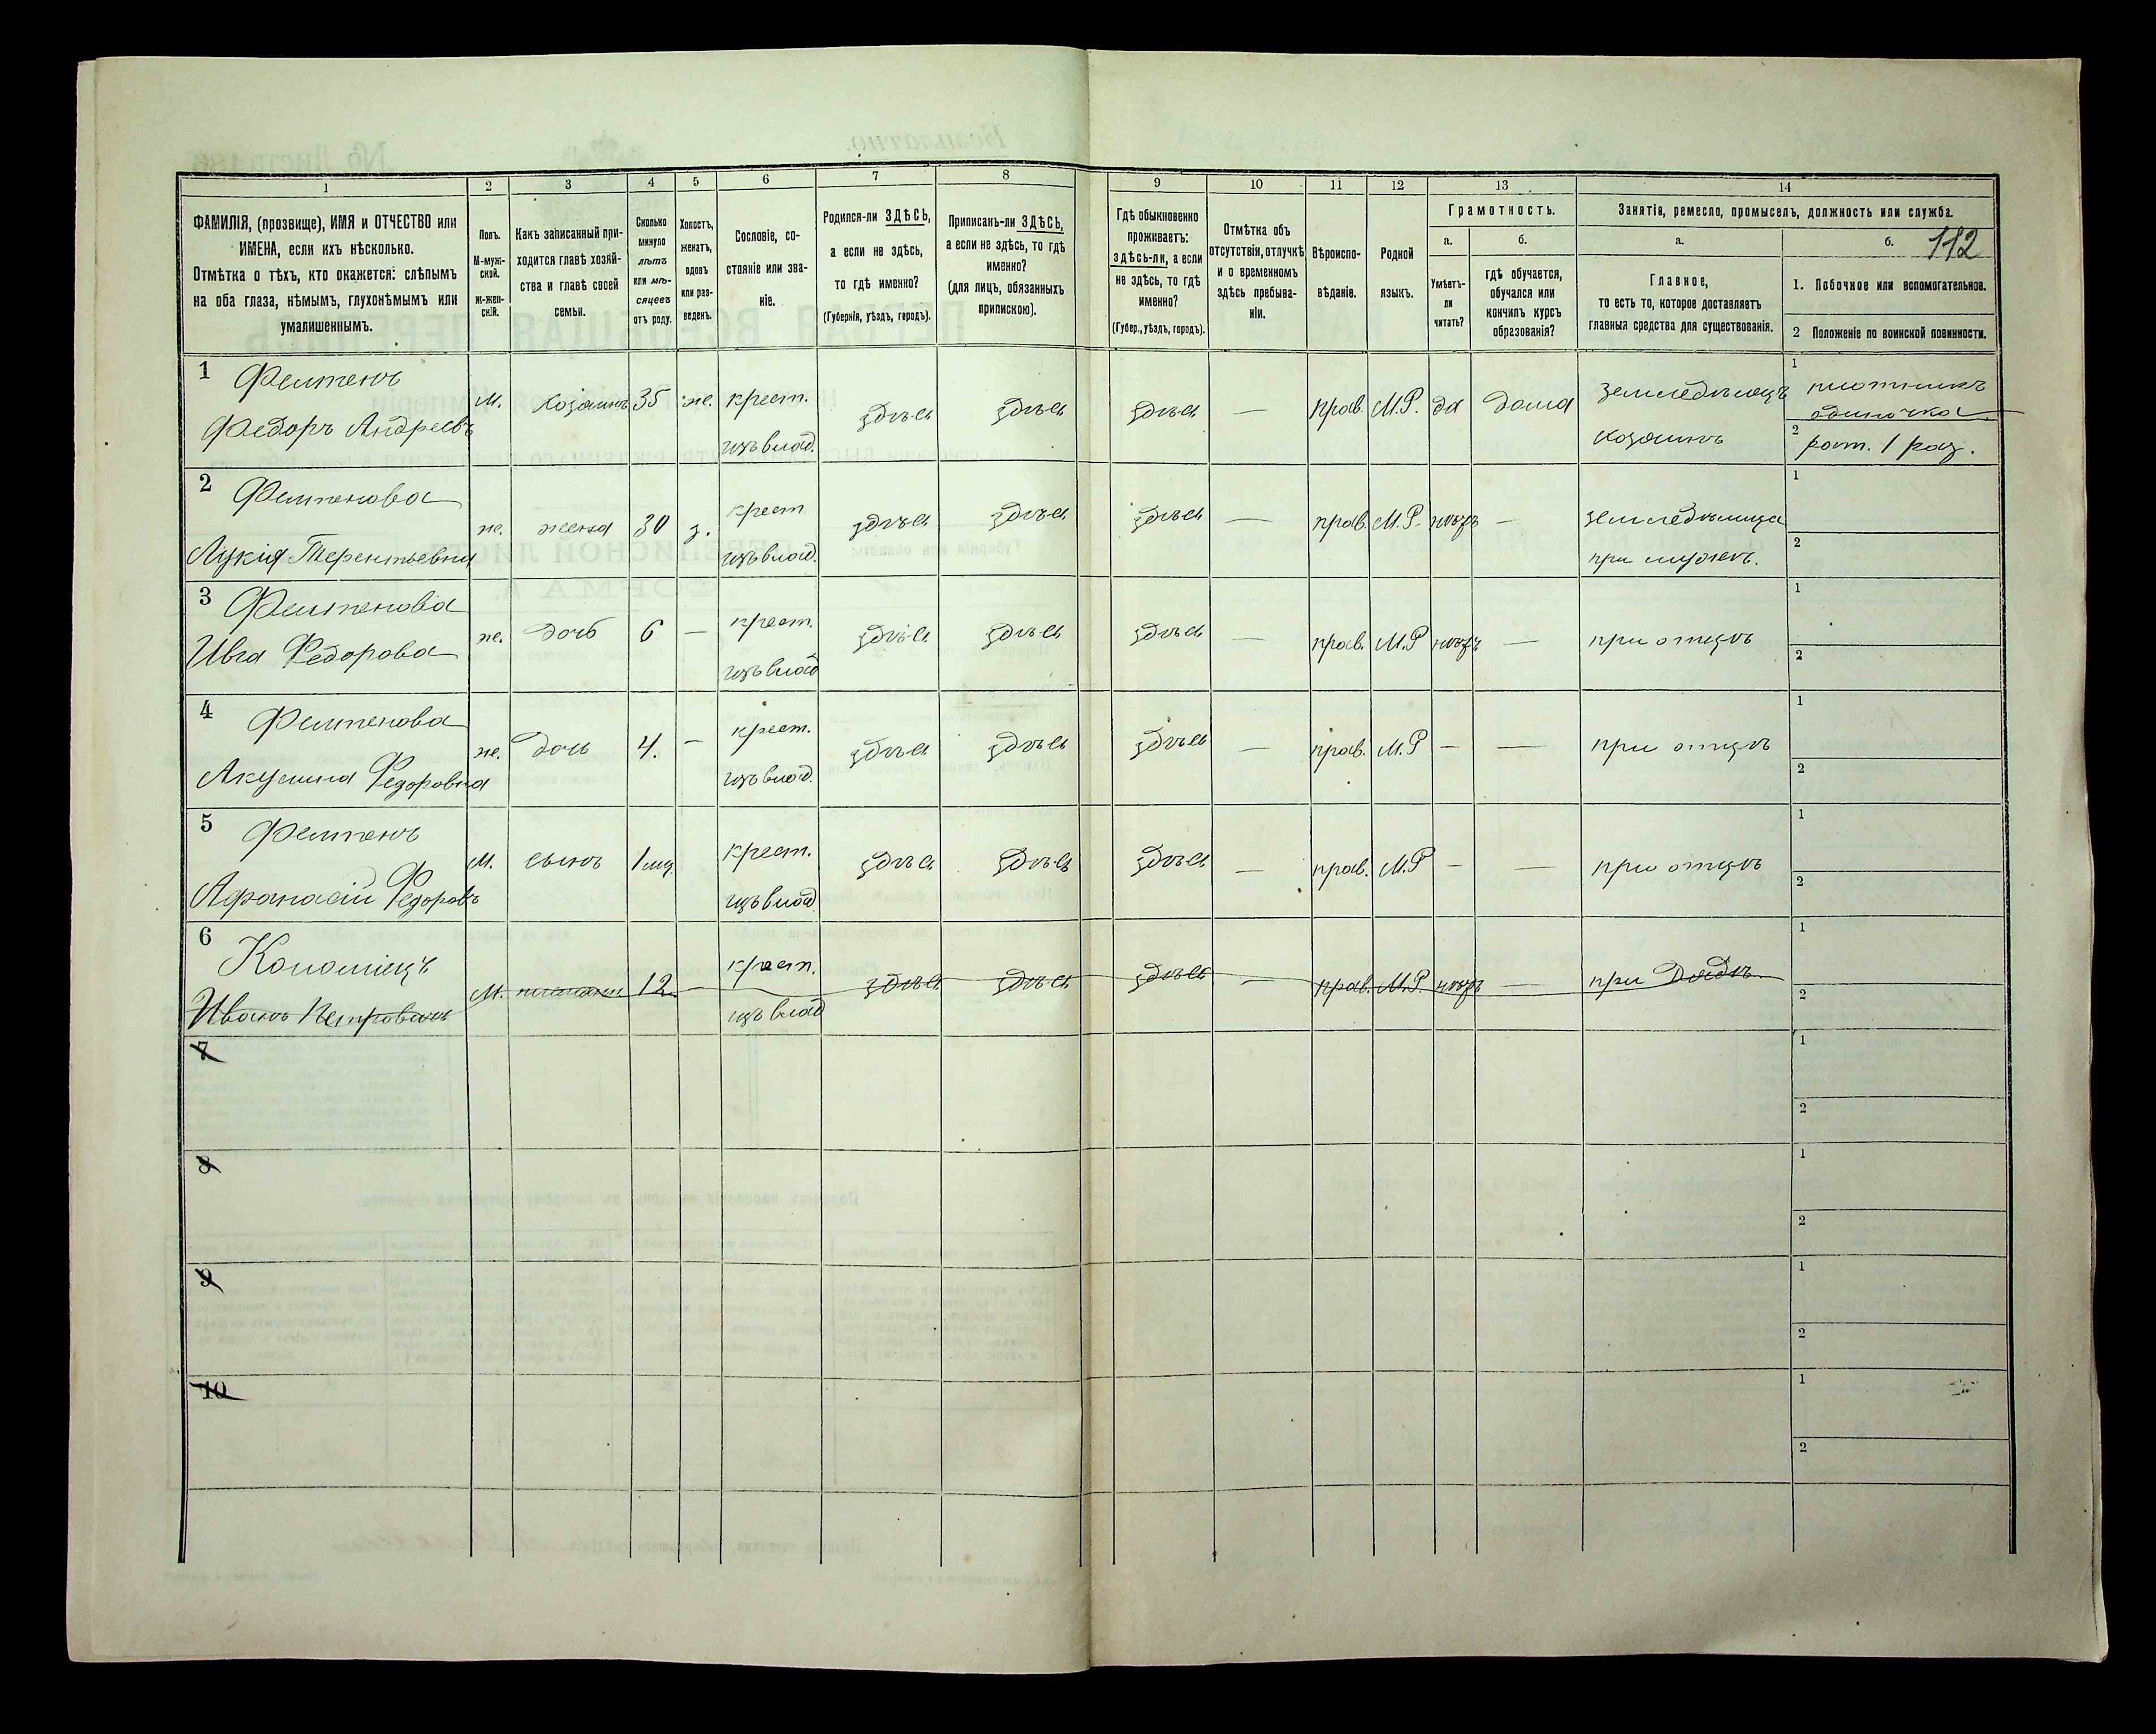 1
2
3
4
5
6
7
8
9
10
11
12
13
14
ФАМИЛІЯ, (прозвище), ИМЯ и ОТЧЕСТВО или
ИМЕНА, если ихъ нѣсколько.
Отмѣтка о тѣхъ, кто окажется: слѣпымъ
на оба глаза, нѣмымъ, глухонѣмымъ или
умалишеннымъ.
Полъ.
М-муж-
ской.
ж-жен-
скій.
Какъ записанный при-
ходится главѣ хозяй-
ства и главѣ своей
семьи.
Сколько
минуло
лѣтъ
или мѣ-
сяцевъ
отъ роду.
Холостъ,
женатъ,
вдовъ
или раз-
веденъ.
Сословіе, со-
стояніе или зва-
ніе.
Родился-ли ЗДѢСЬ,
а если не здѣсь,
то гдѣ именно?
(Губернія, уѣздъ, городъ).
Приписанъ-ли ЗДѢСЬ,
а если не здѣсь, то гдѣ
именно?
(для лицъ, обязанныхъ
припискою).
Гдѣ обыкновенно
проживаетъ:
здѣсь-ли, а если
не здѣсь, то гдѣ
именно?
(Губер., уѣздъ, городъ).
Отмѣтка объ
отсутствіи, отлучкѣ
и о временномъ
здѣсь пребыва-
ніи.
Вѣроиспо-
вѣданіе.
Родной
языкъ.
Грамотность.
а.
Умѣетъ-
ли
читать?
б.
гдѣ обучается,
обучался или
кончилъ курсъ
образованія?
Занятія, ремесло, промыселъ, должность или служба.
а.
Главное,
то есть то, которое доставляетъ
главныя средства для существованія.
б.
112
1. Побочное или вспомогательное.
2 Положеніе по воинской повинности.
1
Федоръ Андреевъ
М. хозяинъ 35 же. крест.
изъ влад.
здѣсь здѣсь здѣсь — прав. М.Р. да дома
земледѣлецъ
хозяинъ
1 плотникъ
одиночка
2 рат. 1 раз.
2
Лукія Терентьевна
же. жена 30 з. крест.
изъ влад.
здѣсь здѣсь здѣсь — прав. М.Р. нѣтъ —
земледѣлица
при мужѣ.
1
2
3
Федорова
же. дочь 6 — крест.
изъ влад
здѣсь здѣсь здѣсь — прав. М.Р нѣтъ — при отцѣ
1
2
4
Акулина Федоровна
же. дочь 4. — крест.
изъ влад.
здѣсь здѣсь здѣсь — прав. М.Р — — при отцѣ
1
2
5
Афанасій Федоровъ
М. сынъ 1 мц. крест.
изъ влад
здѣсь здѣсь здѣсь — прав. М.Р — — при отцѣ
1
2
6 Коломіецъ
Иванъ Петровичъ
М. 12 — крест.
изъ влад
здѣсь здѣсь здѣсь — прав. М.Р. нѣтъ — при дядѣ.
1
2
7
1
2
8
1
2
9
1
2
10
1
2